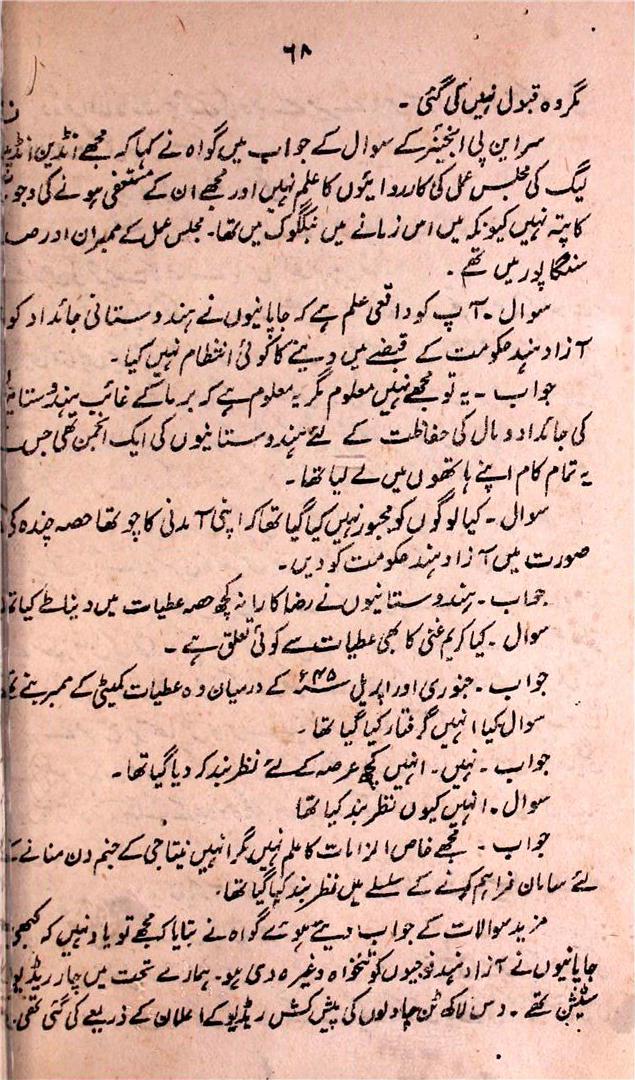 ۶۸
مگر وہ قبول نہیں کی گئی ۔
سر این پی انجینئر کے سوال کے جواب میں گواہ نے کہا کہ مجھے انڈین انڈیپنڈنس
لیگ کی مجلس عمل کی کارروائیوں کا علم نہیں اور مجھے ان کے مستعفی ہونے کی وجوہ
کا پتہ نہیں کیونکہ میں اس زمانے میں بنگلوک میں تھا۔ مجلس عمل کے ممبران اور صدر
سنگاپور میں تھے ۔
سوال ۔ آپ کو واقعی علم ہے کہ جاپانیوں نے ہندوستانی جائداد کو
آزاد ہند حکومت کے قبضے میں دینے کا کوئی انتظام نہیں کیا ۔
جواب ۔ یہ تو مجھے نہیں معلوم مگر یہ معلوم ہے کہ برما کے غائب ہندوستانیوں
کی جائداد و مال کی حفاظت کے لئے ہندوستانیوں کی ایک انجمن تھی جس نے
یہ تمام کام اپنے ہاتھوں میں لے لیا تھا ۔
سوال ۔ کیا لوگوں کو مجبور نہیں کیا گیا تھا کہ اپنی آمدنی کا چوتھا حصہ چندہ کی
صورت میں آزاد ہند حکومت کو دیں ۔
جواب ۔ ہندوستانیوں نے رضاکارانہ کچھ حصہ عطیات میں دینا طے کیا تھا
سوال ۔ کیا کریم غنی کا بھی عطیات سے کوئی تعلق ہے ۔
جواب ۔ جنوری اور اپریل ۴۵ء کے درمیان وہ عطیات کمیٹی کے ممبر بنے تھے
سوال کیا انہیں گرفتار کیا گیا تھا ۔
جواب ۔ نہیں ۔ انہیں کچھ عرصہ کے لئے نظر بند کر دیا گیا تھا ۔
سوال ۔ انہیں کیوں نظر بند کیا تھا
جواب ۔ مجھے خاص الزامات کا علم نہیں مگر انہیں نیتاجی کے جنم دن منانے کے
لئے سامان فراہم کرنے کے سلسلے میں نظر بند کیا گیا تھا ۔
مزید سوالات کے جواب دیتے ہوئے گواہ نے بتایا کہ مجھے تو یاد نہیں کہ کبھی
جاپانیوں نے آزاد ہند فوجیوں کو تنخواہ وغیرہ دی ہو ۔ ہمارے تحت میں چار ریڈیو
سٹیشن تھے ۔ دس لاکھ ٹن چاولوں کی پیش کش ریڈیو کے اعلان کے ذریعے کی گئی تھی ۔